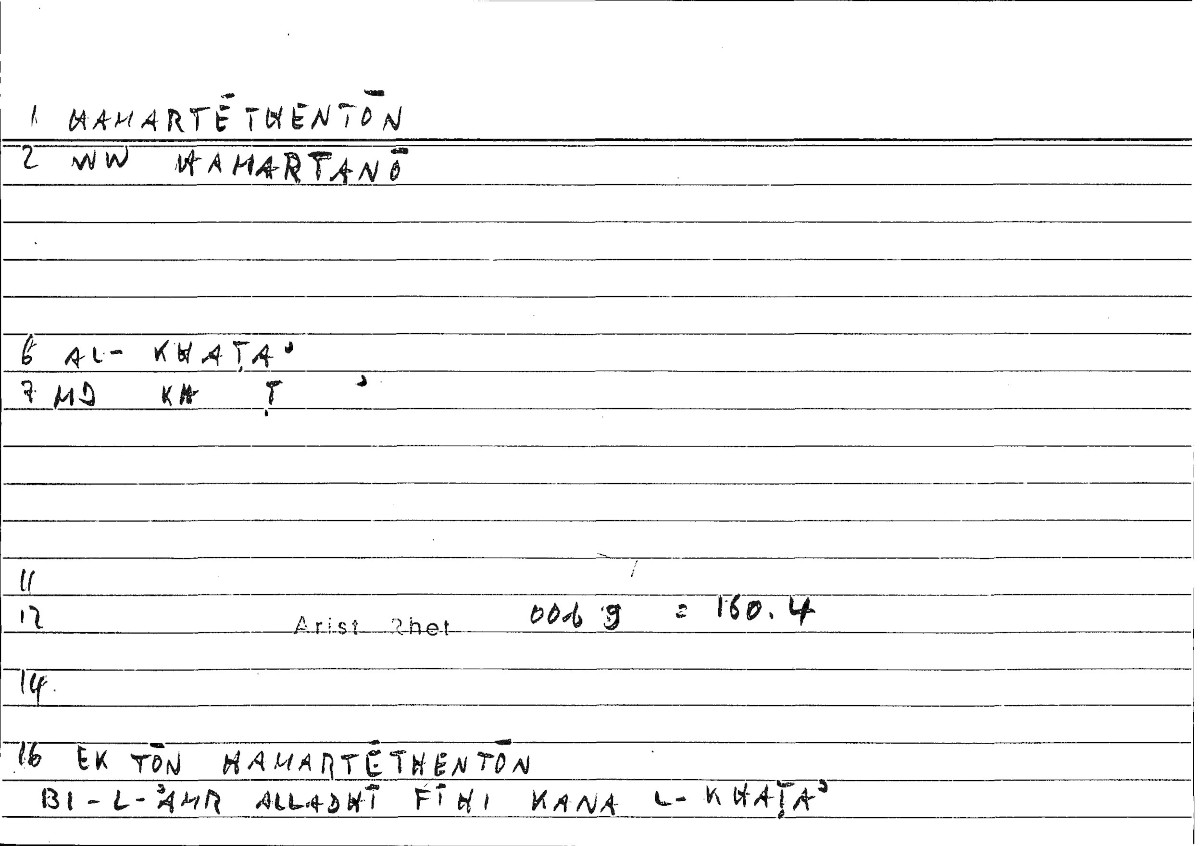 1 HAMARTĒTHENTŌN
2 WW HAMARTANŌ
6 AL- KHAṬAʾ
7 MD KH Ṭ ʾ
11
12 Arist Rhet 006 9 = 160.4
14
16 EK TŌN HAMARTĒTHENTŌN
BI-L-ʾAMR ALLADHĪ FĪHI KANA L-KHAṬAʾ